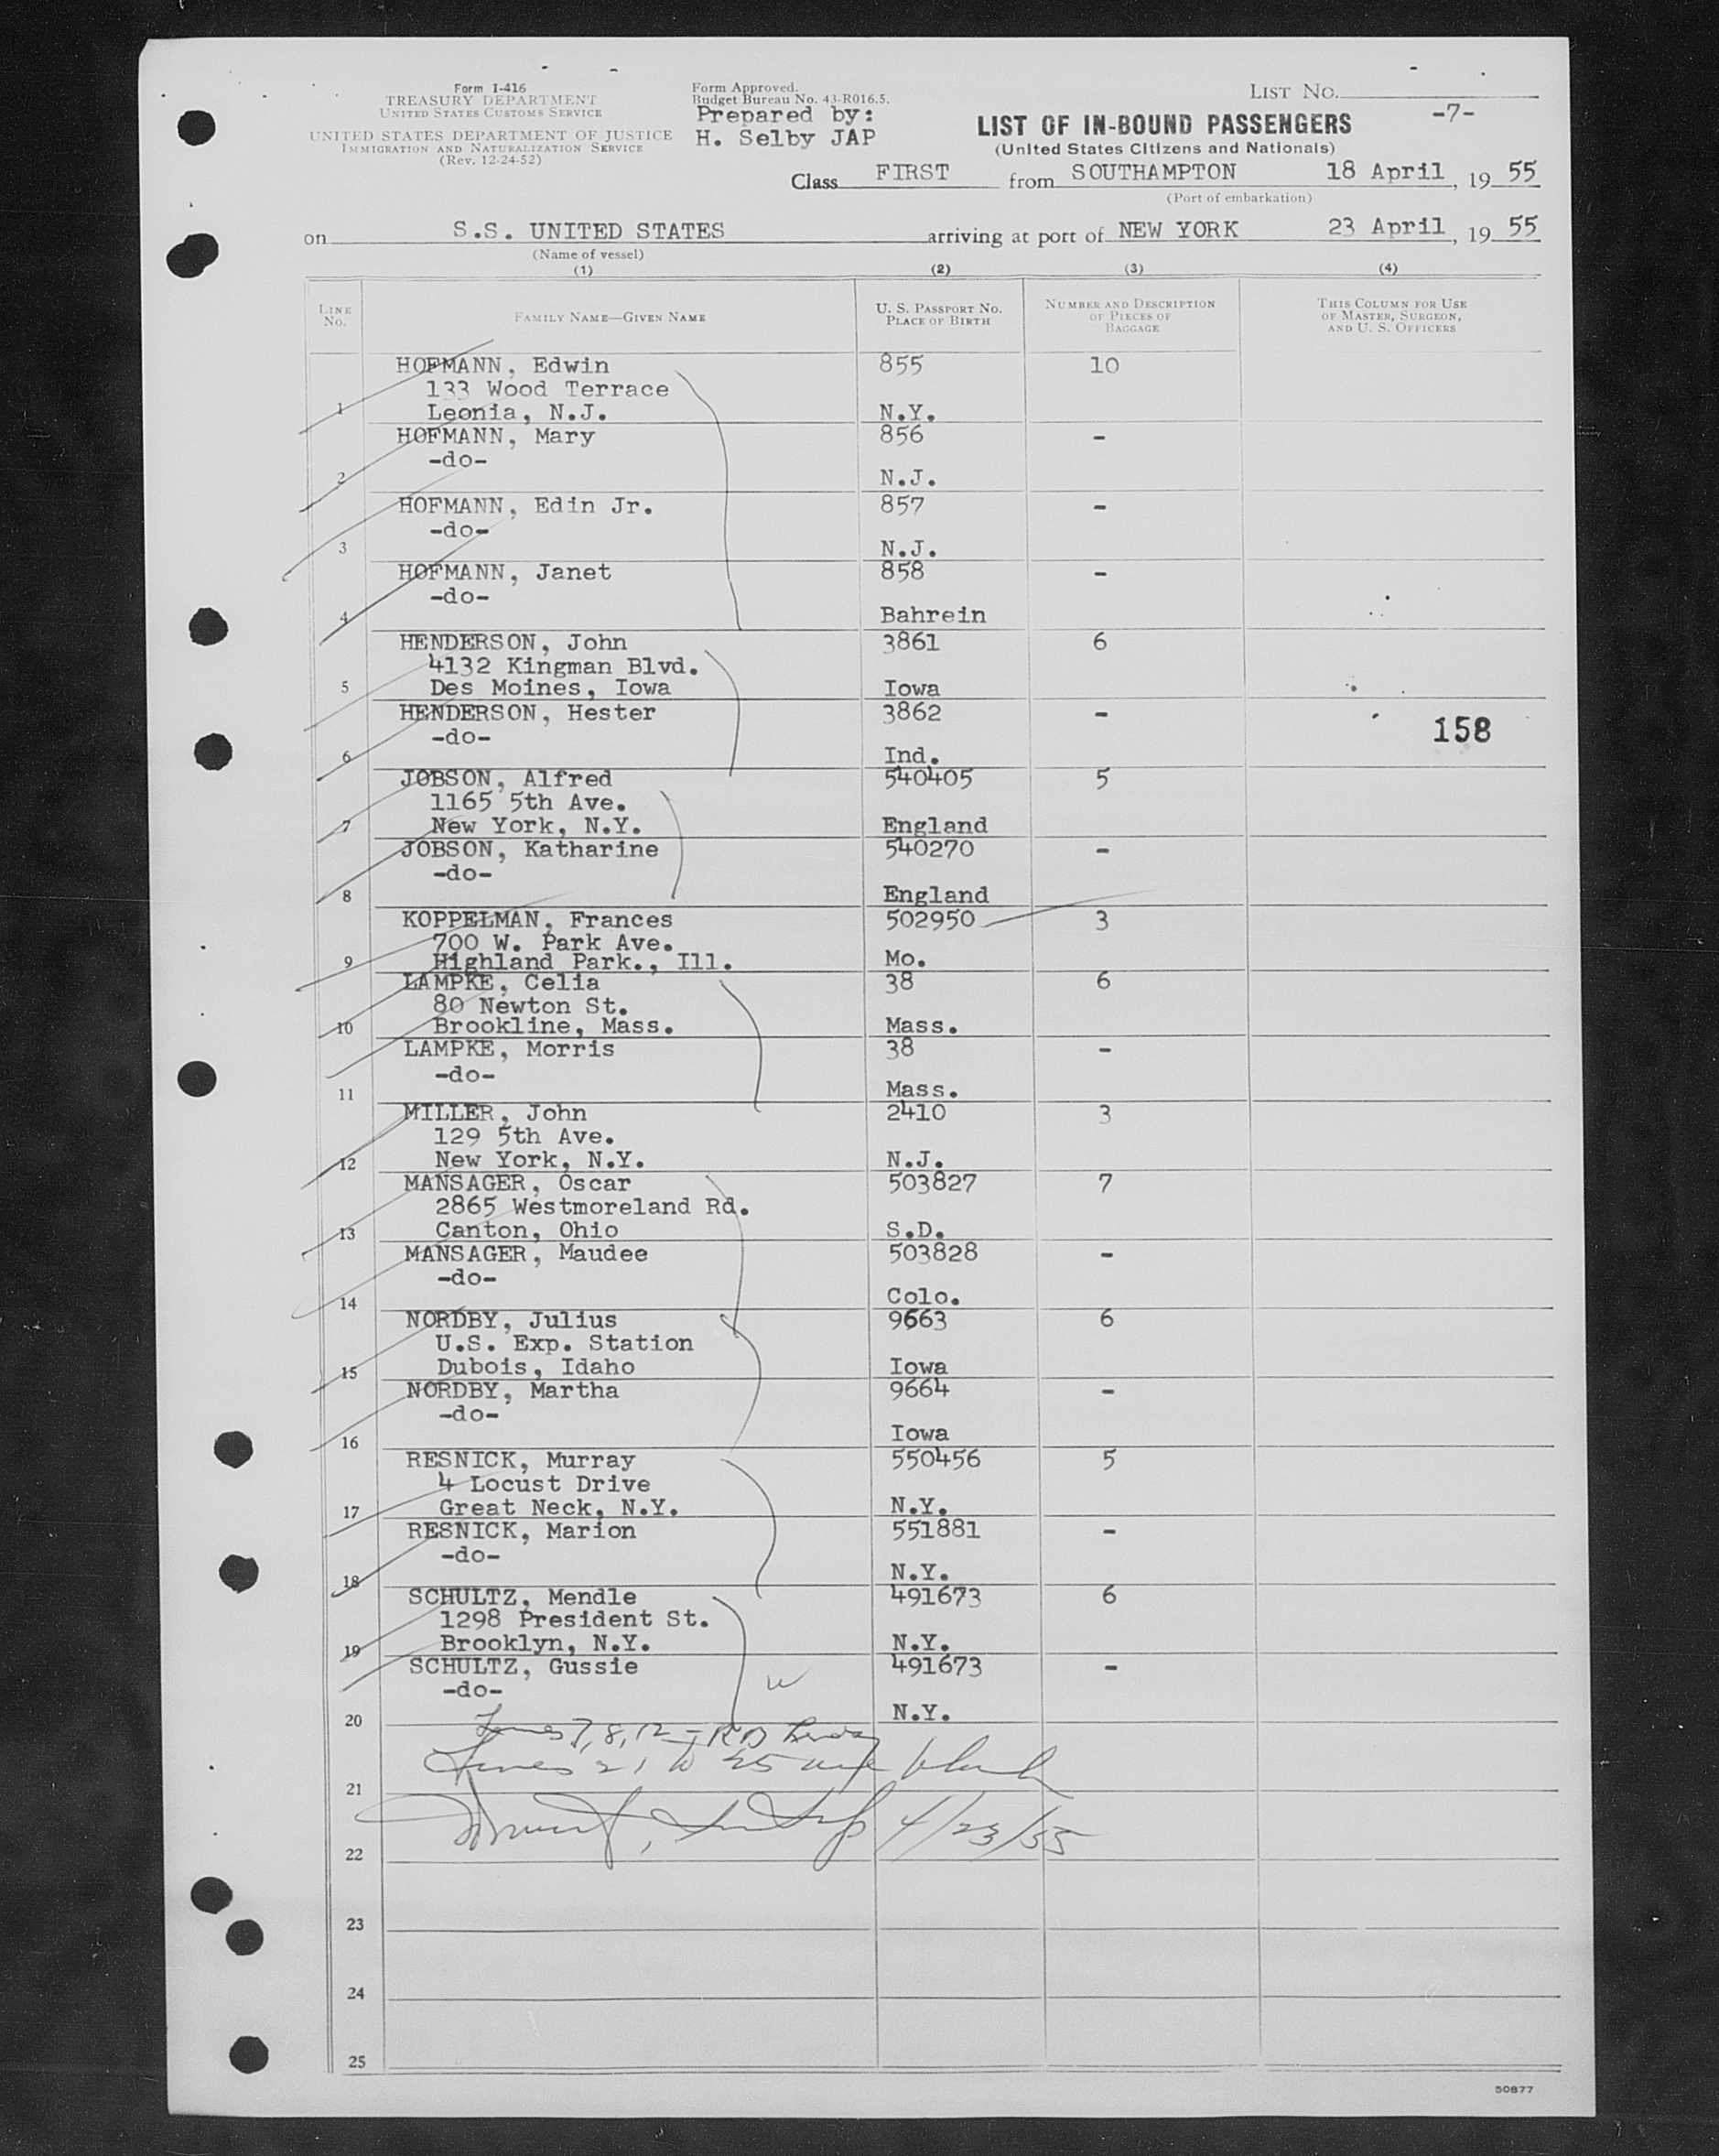 Form I-416
TREASURY DEPARTMENT
UNITED STATES CUSTOMS SERVICE
UNITED STATES DEPARTMENT OF JUSTICE
IMMIGRATION AND NATURALIZATION SERVICE
(Rev. 12-24-52)
Form Approved.
Budget Bureau No. 43-R016.5.
Prepared by:
H. Selby JAP
LIST NO.
-7-
LIST OF IN-BOUND PASSENGERS
(United States Citizens and Nationals)
Class FIRST from SOUTHAMPTON 18 April, 19 55
(Port of embarkation)
on S.S. UNITED STATES arriving at port of NEW YORK 23 April, 19 55
(Name of vessel)
(1) (2) (3) (4)
LINE NO. FAMILY NAME—GIVEN NAME U. S. PASSPORT NO. PLACE OF BIRTH NUMBER AND DESCRIPTION OF PIECES OF BAGGAGE THIS COLUMN FOR USE OF MASTER, SURGEON, AND U. S. OFFICERS
HOFMANN, Edwin 855 10
133 Wood Terrace
1 Leonia, N.J. N.Y.
HOFMANN, Mary 856 -
-do-
2 N.J.
HOFMANN, Edin Jr. 857 -
-do-
3 N.J.
HOFMANN, Janet 858 -
-do-
4 Bahrein
HENDERSON, John 3861 6
4132 Kingman Blvd.
5 Des Moines, Iowa Iowa
HENDERSON, Hester 3862 -
-do- 158
6 Ind.
JOBSON, Alfred 540405 5
1165 5th Ave.
7 New York, N.Y. England
JOBSON, Katharine 540270 -
-do-
8 England
KOPPELMAN, Frances 502950 3
700 W. Park Ave.
9 Highland Park., Ill. Mo.
LAMPKE, Celia 38 6
80 Newton St.
10 Brookline, Mass. Mass.
LAMPKE, Morris 38 -
-do-
11 Mass.
MILLER, John 2410 3
129 5th Ave.
12 New York, N.Y. N.J.
MANSAGER, Oscar 503827 7
2865 Westmoreland Rd.
13 Canton, Ohio S.D.
MANSAGER, Maudee 503828 -
-do-
14 Colo.
NORDBY, Julius 9663 6
U.S. Exp. Station
15 Dubois, Idaho Iowa
NORDBY, Martha 9664 -
-do-
16 Iowa
RESNICK, Murray 550456 5
4 Locust Drive
17 Great Neck, N.Y. N.Y.
RESNICK, Marion 551881 -
-do-
18 N.Y.
SCHULTZ, Mendle 491673 6
1298 President St.
19 Brooklyn, N.Y. N.Y.
SCHULTZ, Gussie 491673 -
-do-
20 N.Y.
Lines 7, 8, 12
Lines 21 to 25 are blank
21
4/23/55
22
23
24
25
50877